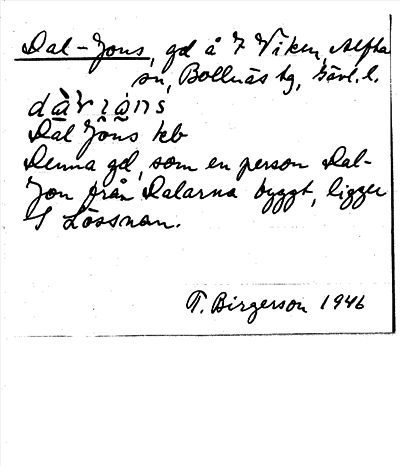 Dal-Jons, gd å 7 Viken, Alfta
sn, Bollnäs tg, Gävl. l.
Dal Jons kb
Denna gd, som en person Dal-
Jon från Dalarna byggt, ligger
i Lössnan.
T. Birgerson 1946